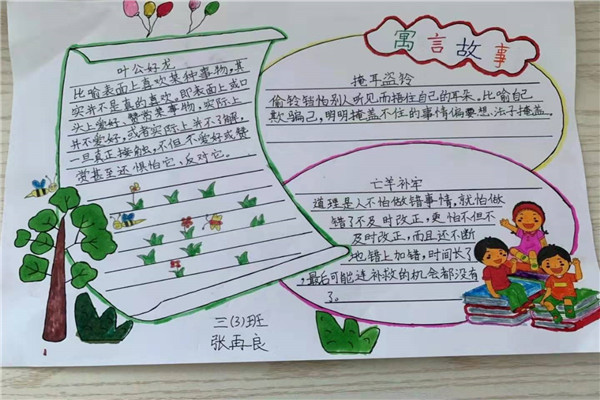 寓言故事
叶公好龙
比喻表面上喜欢某种事物,其
实并不是真的喜欢,即表面上或口
头上爱好、赞赏某事物,实际上
并不爱好,或者实际上并不了解,
一旦真正接触,不但不爱好或赞
赏甚至还惧怕它,反对它。
掩耳盗铃
偷铃铛怕别人听见而捂住自己的耳朵,比喻自己
欺骗自己,明明掩盖不住的事情偏要想法子掩盖。
亡羊补牢
道理是人不怕做错事情,就怕做
错了不及时改正,更怕不但不
及时改正,而且还不断
地错上加错,时间长了
,最后可能连补救的机会都没有
了。
三(3)班
张再良